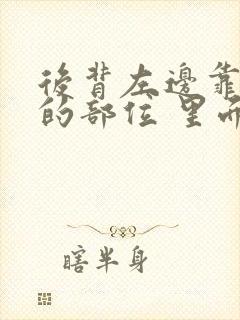 後背左邊靠
的部位 里面
瞎半身